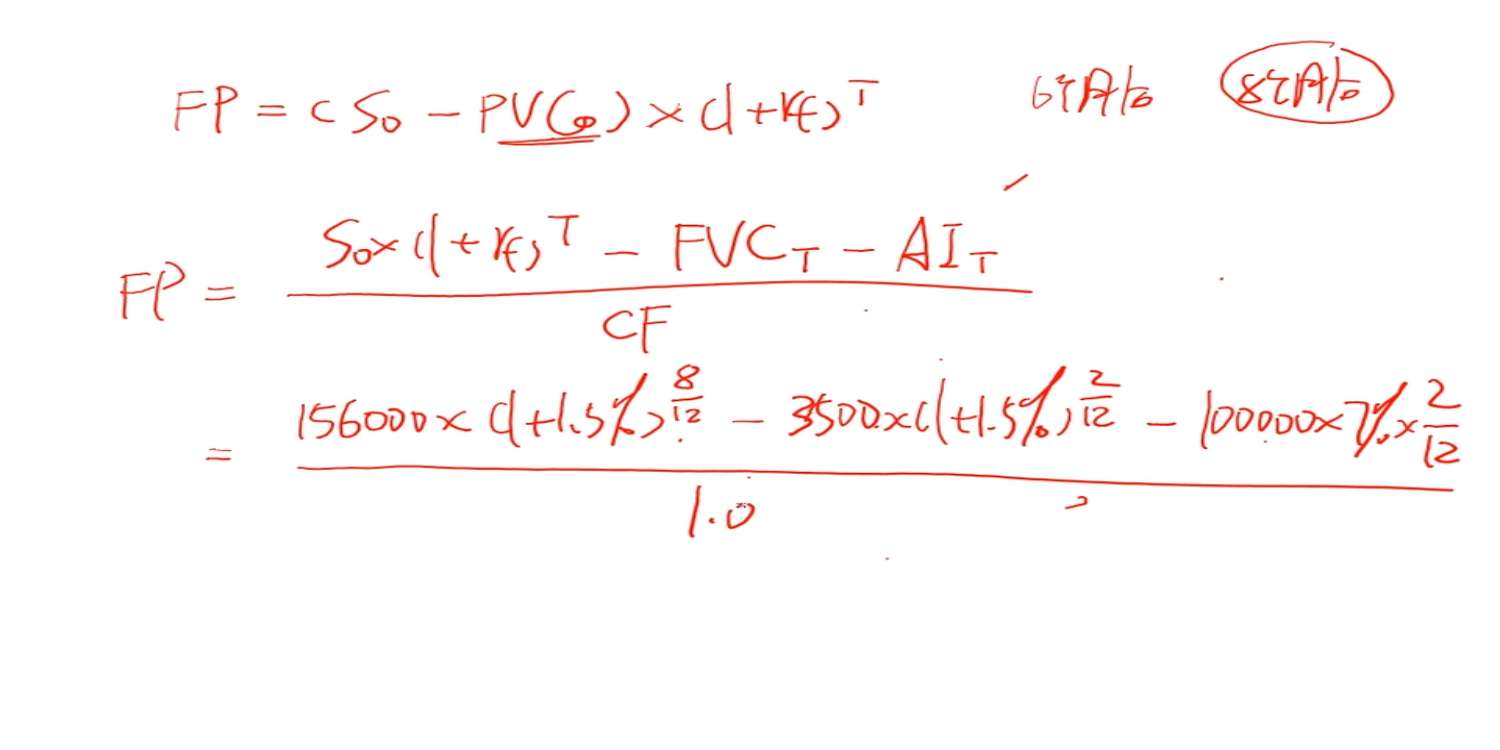 FP = (S₀ - PVC₀) × (1+rf)ᵀ 6个月后 8个月后
FP = \frac{S₀×(1+rf)ᵀ - FVC_T - AI_T}{CF}
= \frac{156000×(1+1.5%)^{\frac{8}{12}} - 3500×(1+1.5%)^{\frac{2}{12}} - 100000×7%×\frac{2}{12}}{1.0}